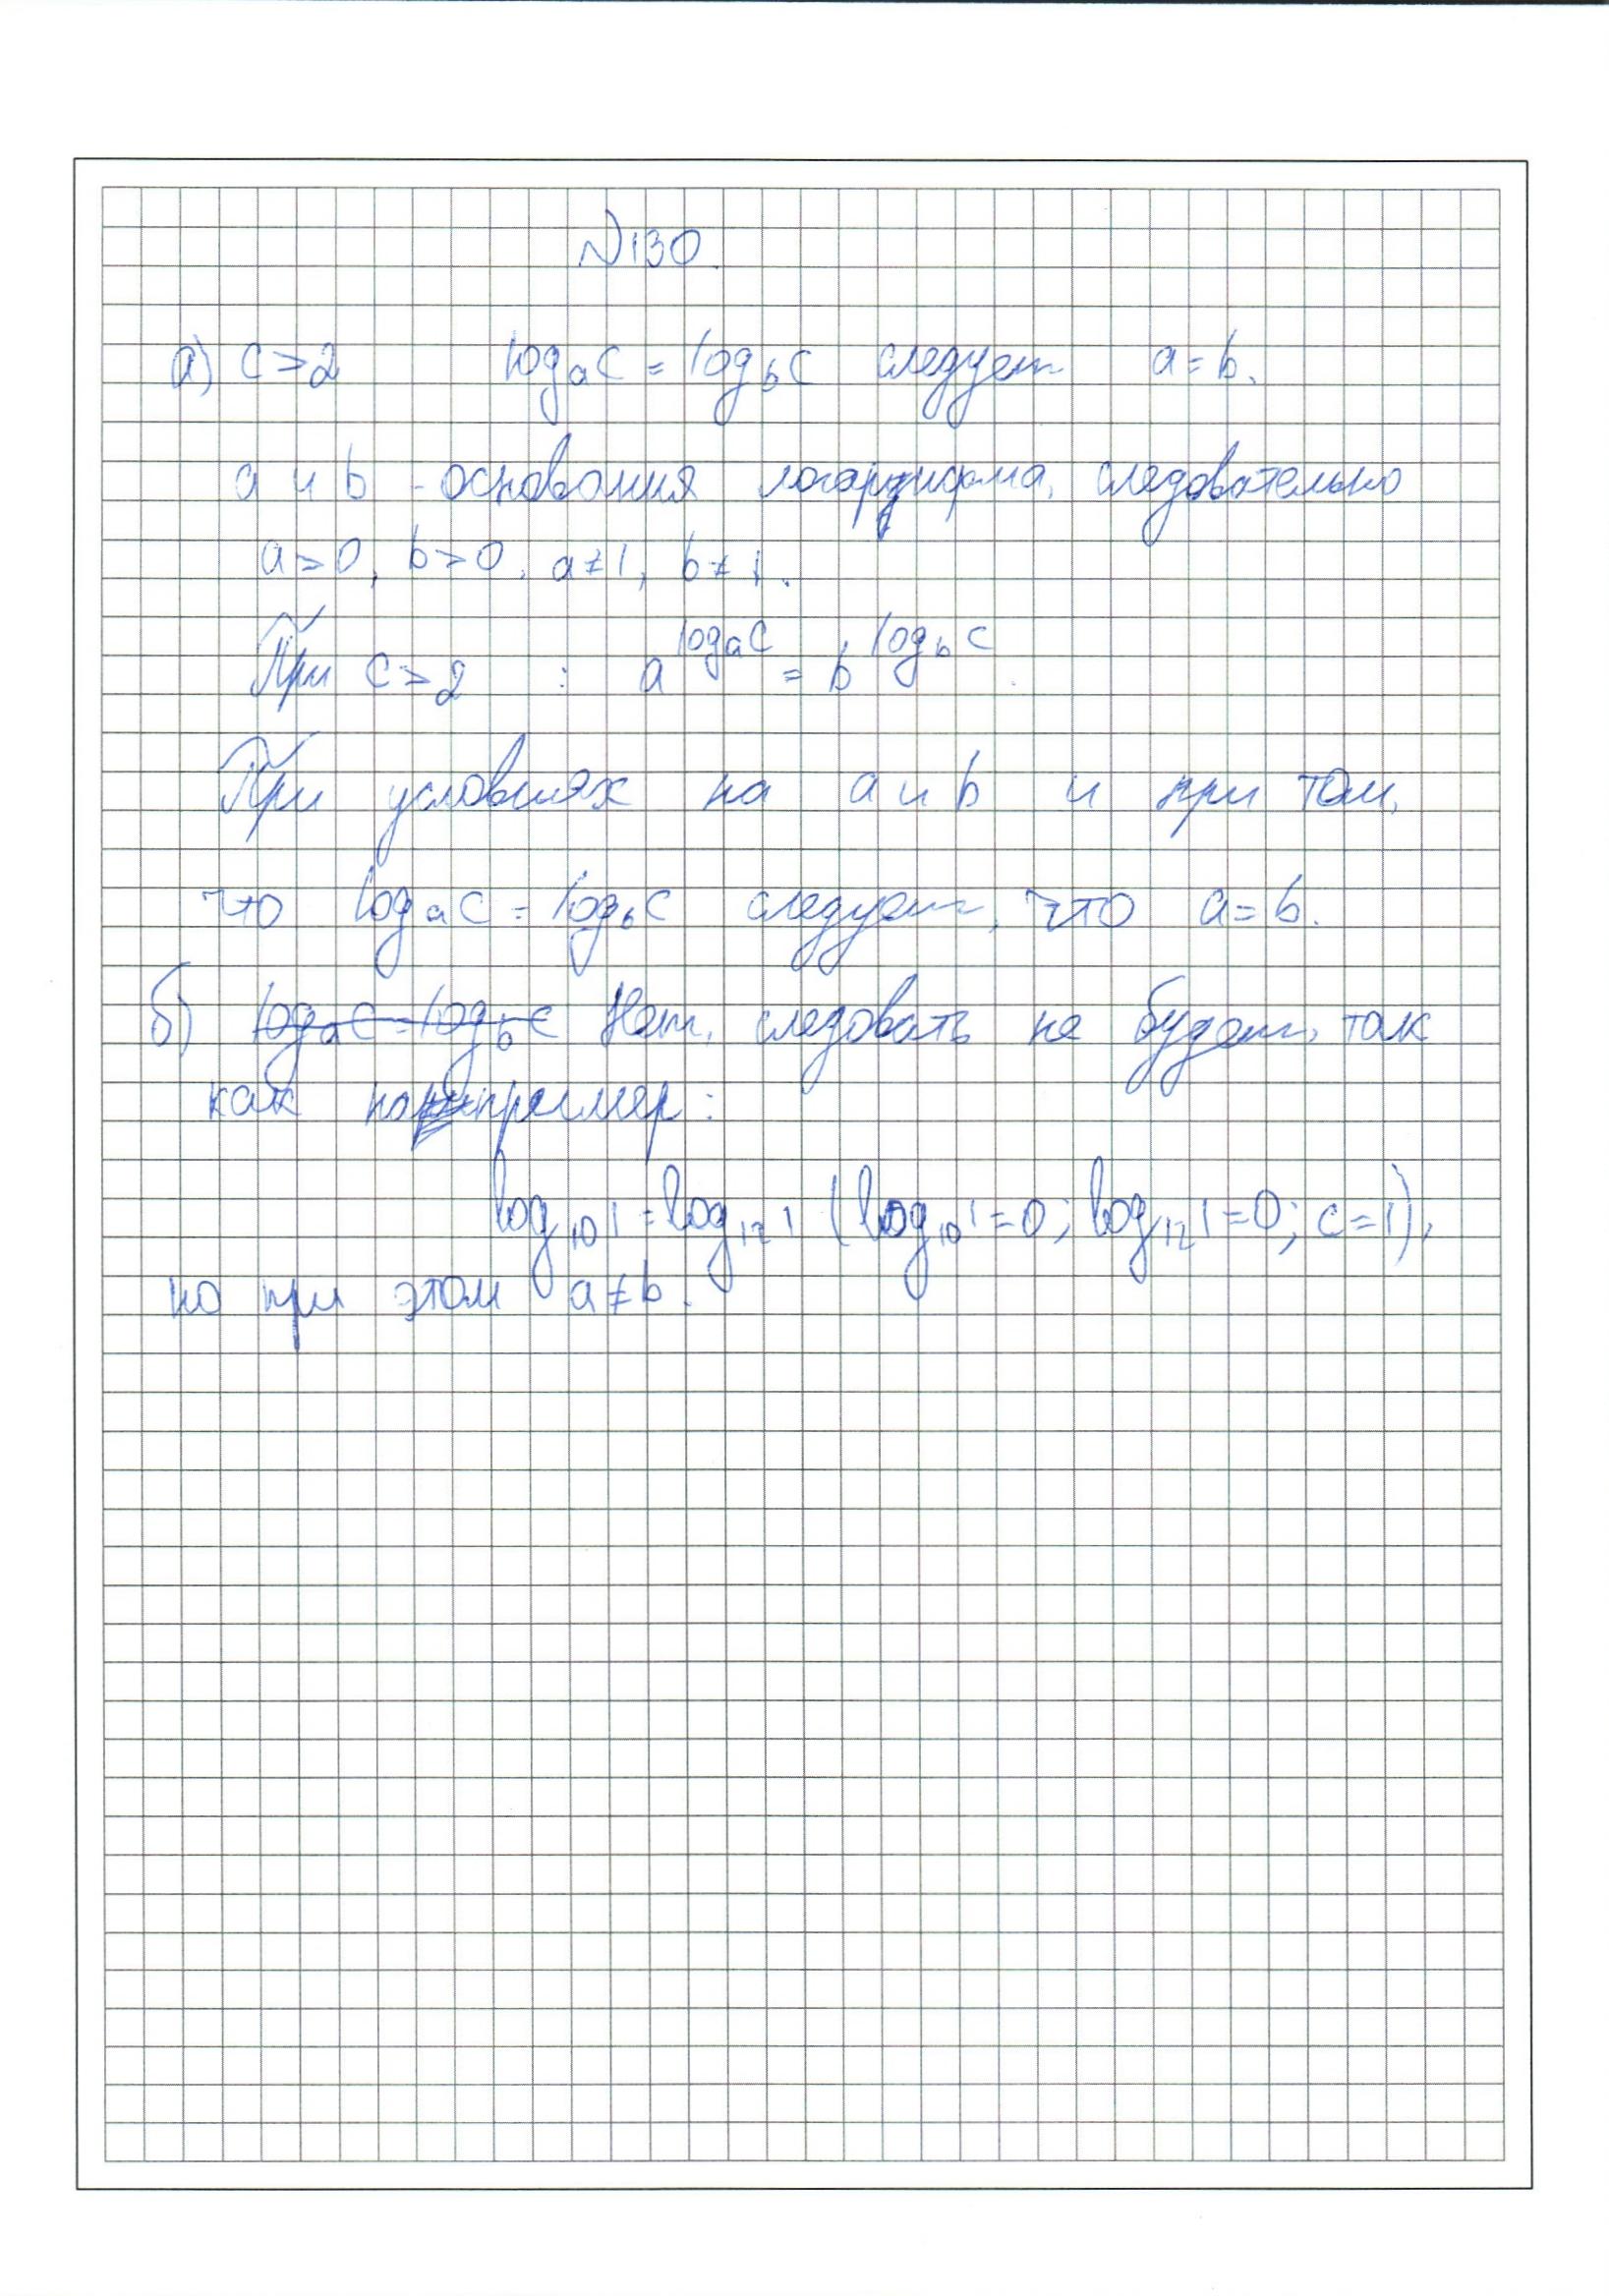 N130.
а) c>2 log_a c = log_b c следует a=b.
a и b - основания логарифма, следовательно
a>0, b>0, a≠1, b≠1.
При c>2 : a^{log_a c} = b^{log_b c}.
При условиях на a и b и при том,
что log_a c = log_b c следует, что a=b.
б) log_a c = log_b c Нет, следовать не будет, так
как например:
log_10 1 = log_12 1 (log_10 1=0; log_12 1=0; c=1),
но при этом a≠b.